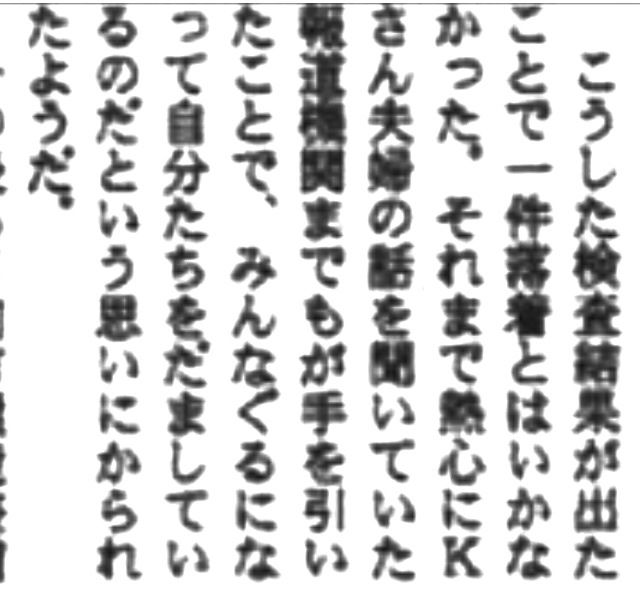 こうした検査結果が出た
ことで一件落着とはいかな
かった。それまで熱心にK
さん夫婦の話を聞いていた
報道機関までもが手を引い
たことで、みんなぐるにな
って自分たちをだましてい
るのだという思いにかられ
たようだ。